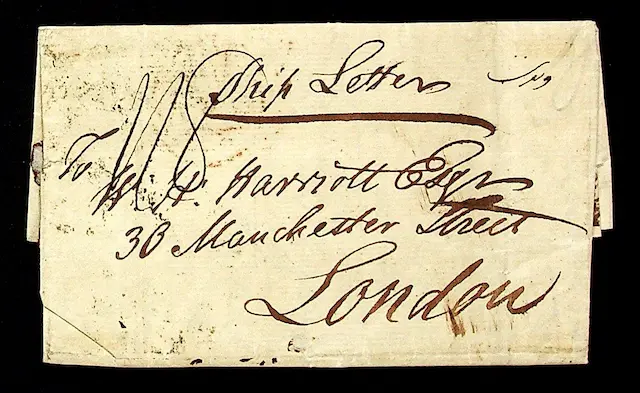 Ship Letter
To
W. H. Harriott Esqr
30 Manchester Street
London